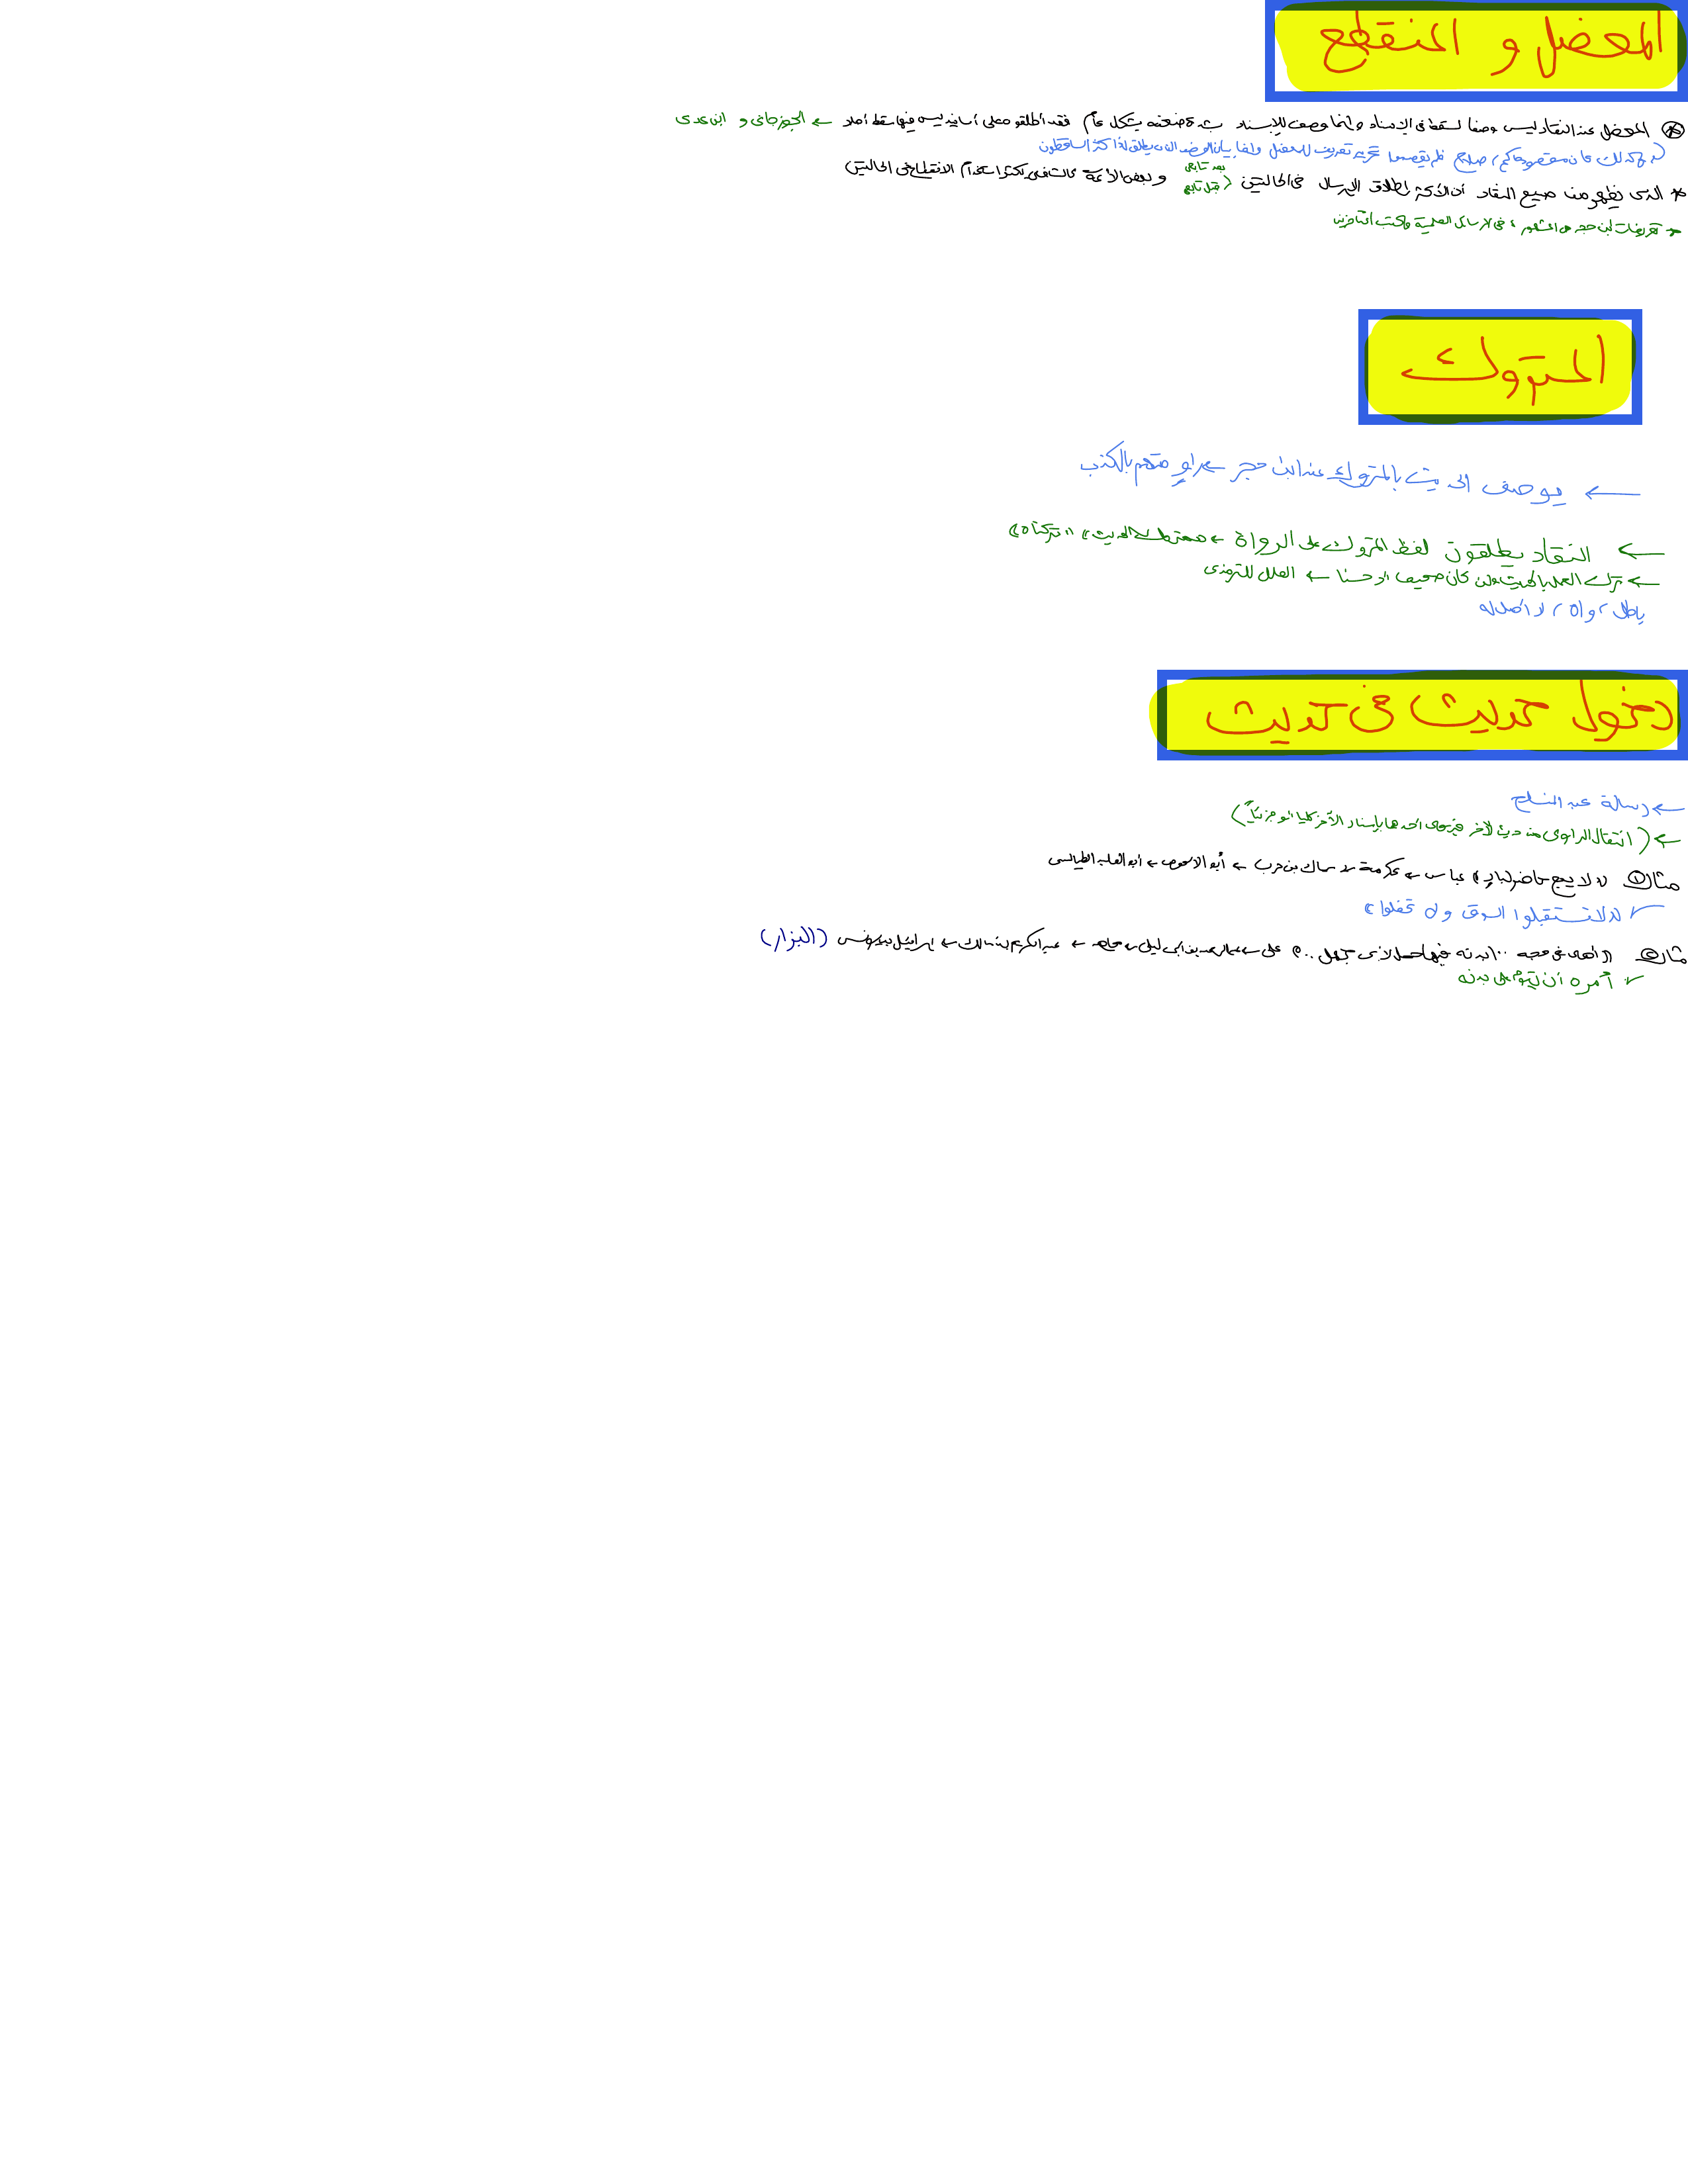 المعضل و المنقطع
المعضل عند النقاد ليس وصفا لسقط في الإسناد وإنما وصف للإسناد بشدة ضعفه بشكل عام فقد أطلقوه على أسانيد ليس فيها سقط أصلا ← الجوزجاني و ابن عدي
كذلك كان مقصود حاكم، صلاح فلم يقصدوا تحرير تعريف للمعضل وإنما بيان الموضع الذي يطلق إذا كثر الساقطون
* الذي يظهر من صنيع النقاد أن الأكثر إطلاق الإرسال في الحالتين (بعد تابعي قبل تابعي و بعض الأئمة كالشافعي يكثر استخدام الانقطاع في الحالتين
* تعريفات ابن حجر هي المشهور في الرسائل العلمية وكتب المتأخرين
المتروك
← يوصف الحديث بالمتروك عند ابن حجر ← راوٍ متهم بالكذب
← النقاد يطلقون لفظ المتروك على الرواة ← الحديث، "تركناه"
← ترك العمل بالحديث وإن كان صحيحا أو حسنا ← العلل للترمذي
باطل، واه، لا أصل له
دخول حديث في حديث
← رسالة عبد السلام
← (انتقال الراوي من حديث لآخر فيروي أحدهما بإسناد الآخر كليا أو جزئيا)
مثال ① "لا يبع حاضر لباد" عباس ← عكرمة ← سماك بن حرب ← أبو الأحوص ← أبو الطيالسي
"لا تستقبلوا السوق ولا تحفلوا"
مثال ② "أهدى في حجه ١٠٠ بدنة فيها جمل لأبي جهل .." علي ← عبد الرحمن بن أبي ليلى ← مجاهد ← عبد الكريم بن مالك ← إسرائيل بن يونس (البزار)
أمره أن يقوم على بدنه